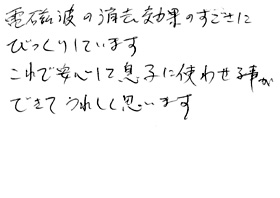 電磁波の消去効果のすごさに
びっくりしています
これで安心して息子に使わせる事が
できてうれしく思います